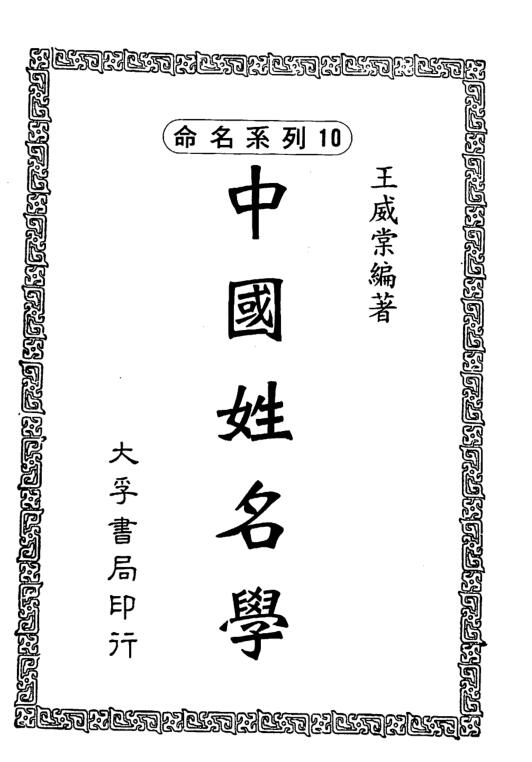 命名系列10
王威棠編著
中國姓名學
大孚書局印行